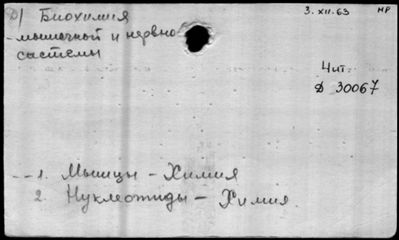 Биохимия
3.XII.63
НР
мышечной и нервной
системы
Чит.
Д 30067
1. Мышцы - Химия
2. Нуклеотиды - Химия.